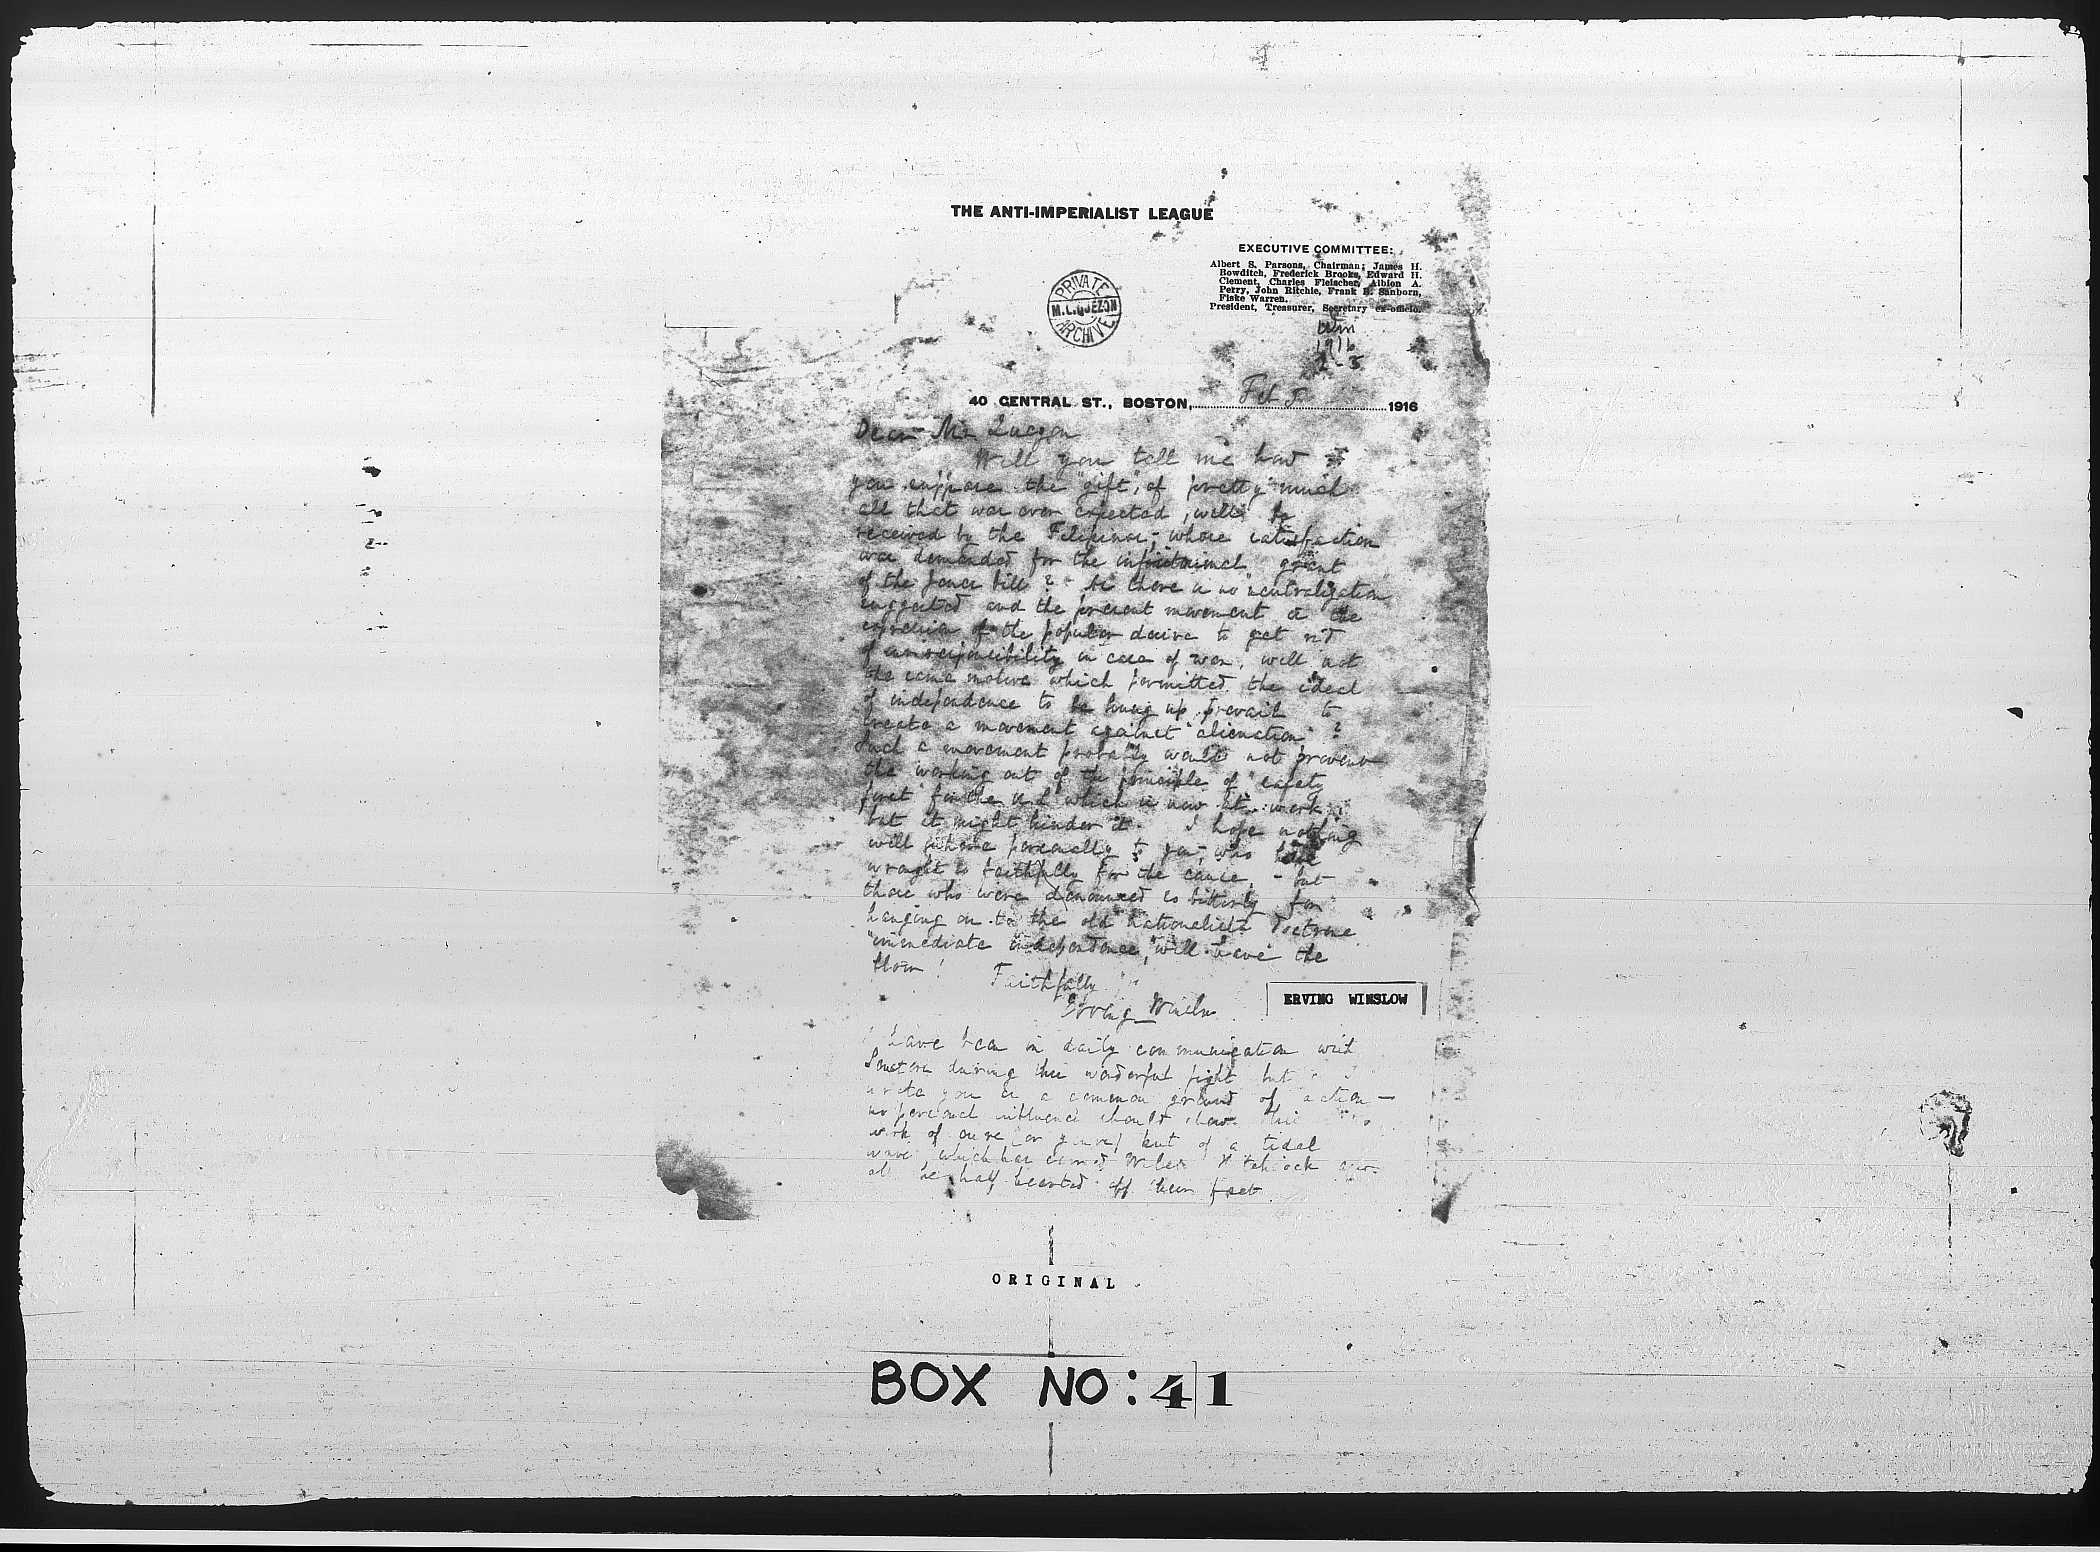 THE ANTI-IMPERIALIST LEAGUE
EXECUTIVE COMMITTEE:
Albert S. Parsons, Chairman; James H.
Bowditch, Frederick Brooks, Edward H.
Clement, Charles Fleischer, Albion A.
Perry, John Ritchie, Frank B. Sanborn,
Fiske Warren.
President, Treasurer, Secretary ex-officio.
PRIVATE
M.L.QUEZON
ARCHIVE
1916
2-5
40 CENTRAL ST., BOSTON, Feb 5 1916
Dear Mr Quezon
Will you tell me how
you suppose the "gift", of pretty much
all that was ever expected, will be
received by the Filipinos, whose satisfaction
was demanded for the grant
of the Jones bill? As there is no "neutralization"
suggested and the present movement is the
expression of the popular desire to get rid
of responsibility in case of war, will not
the same motive which permitted the ideal
of independence to be hung up prevail to
create a movement against "alienation"?
Such a movement probably would not prevent
the working out of the principle of "safety
first" for the U.S. which is now at work
but it might hinder it. I hope nothing
will personally to you, who have
wrought so faithfully for the cause, - but
those who were denounced so bitterly for
hanging on to the old Nationalista doctrine
"immediate independence," will have the
floor!
Faithfully
Erving Winslow
ERVING WINSLOW
I have been in daily communication with
Senators during this wonderful fight but
wrote you as a common ground of action -
no personal influence should
work of ours (or yours) but of a tidal
wave, which has carried Hitchcock
all the half hearted off their feet.
ORIGINAL
BOX NO: 41